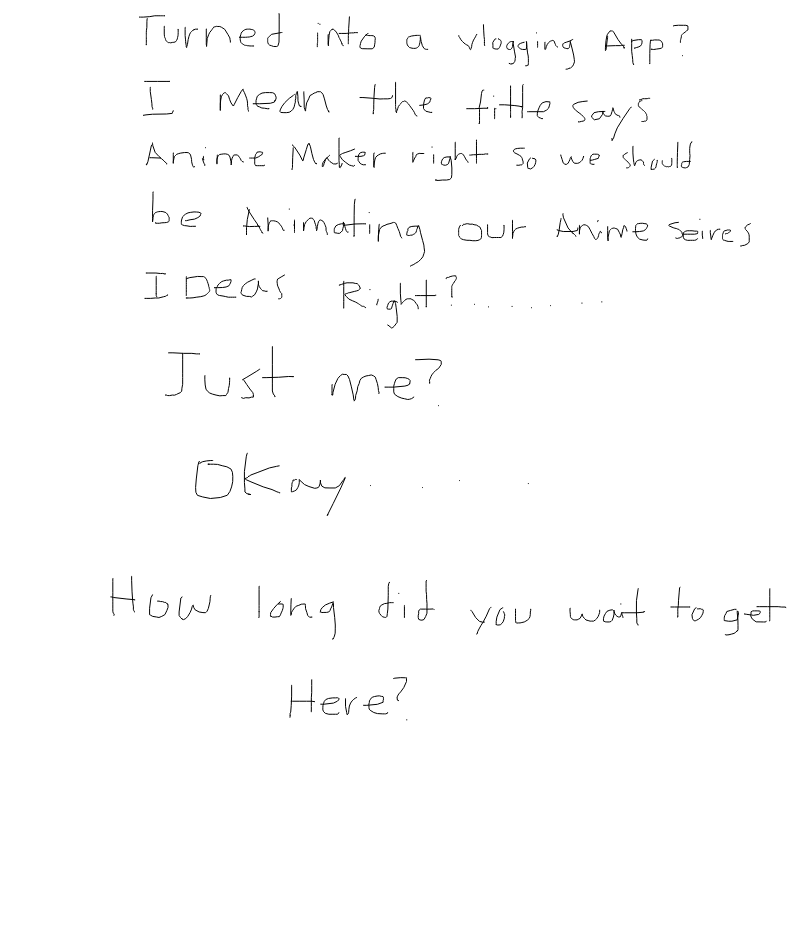 Turned into a vlogging App?
I mean the tittle says
Anime Maker right so we should
be Animating our Anime seires
IDeas Right?.......
Just me?
OKay....
How long did you wait to get
Here?